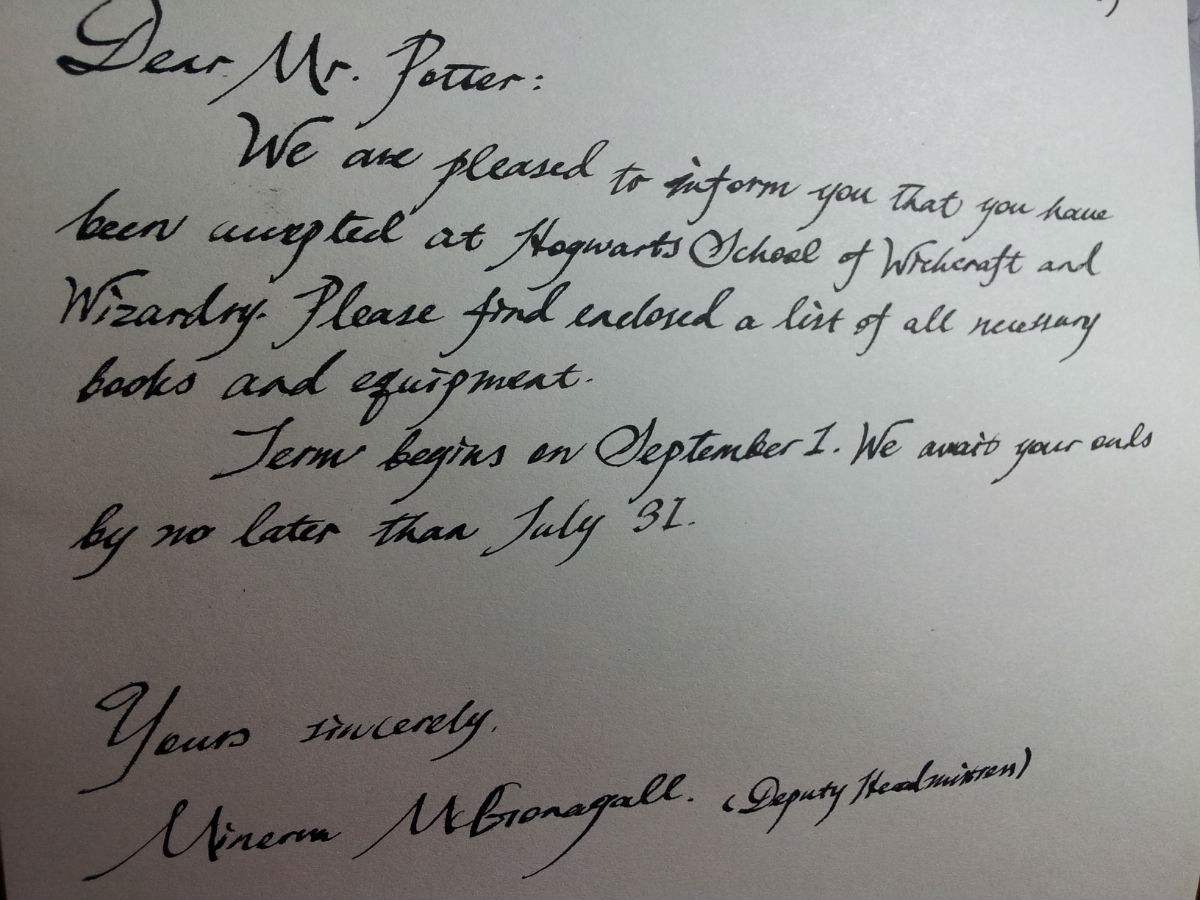 Dear Mr. Potter:
We are pleased to inform you that you have
been accepted at Hogwarts School of Witchcraft and
Wizardry. Please find enclosed a list of all necessary
books and equipment.
Term begins on September 1. We await your owls
by no later than July 31.
Yours sincerely,
Minerva McGonagall. (Deputy Headmistress)